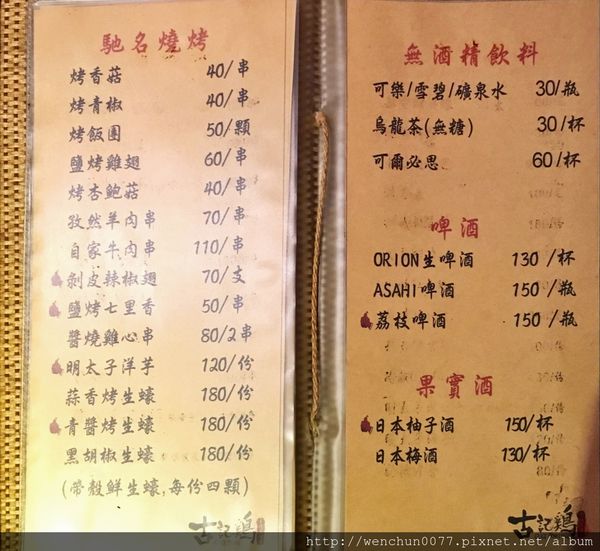 馳名燒烤
烤香菇 40/串
烤青椒 40/串
烤飯團 50/顆
鹽烤雞翅 60/串
烤杏鮑菇 40/串
孜然羊肉串 70/串
自家牛肉串 110/串
剝皮辣椒翅 70/支
鹽烤七里香 50/串
醬燒雞心串 80/2串
明太子洋芋 120/份
蒜香烤生蠔 180/份
青醬烤生蠔 180/份
黑胡椒生蠔 180/份
(帶殼鮮生蠔,每份四顆)
古記鶏
無酒精飲料
可樂/雪碧/礦泉水 30/瓶
烏龍茶(無糖) 30/杯
可爾必思 60/杯
啤酒
ORION生啤酒 130/杯
ASAHI啤酒 150/瓶
荔枝啤酒 150/瓶
果實酒
日本柚子酒 150/杯
日本梅酒 130/杯
古記鶏
http://wenchun0077.pixnet.net/album